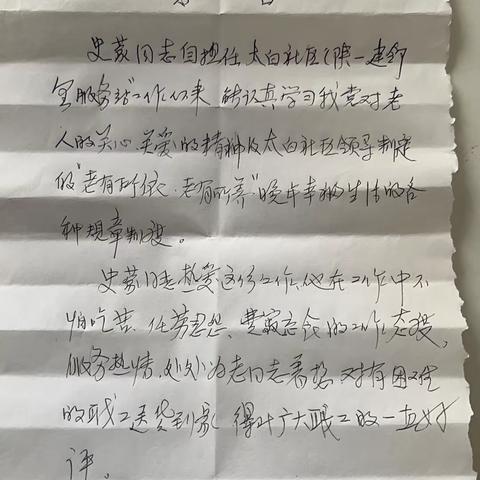 史蒙同志自担任太白社区(陕一建邻
里服务站"工作以来 能认真学习我党对老
人的关心、关爱的精神及太白社区领导制定
的"老有所依、老有所养"晚年幸福生活的各
种规章制度。
史蒙同志热爱这份工作,他在工作中不
怕吃苦、任劳任怨、废寝忘食的工作态度,
服务热情,处处为老同志着想,对有困难
的职工送货到家 得到广大职工的一直好
评。